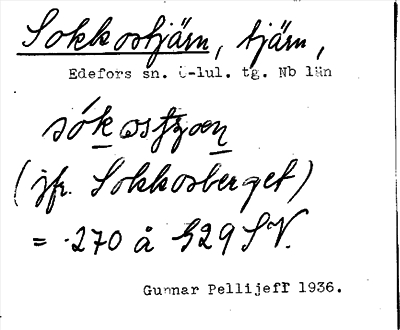 Sokkostjärn, tjärn,
Edefors sn. Ö-lul. tg. Nb län
(jfr. Sokkosberget)
= 270 å 529 SV.
Gunnar Pellijeff 1936.